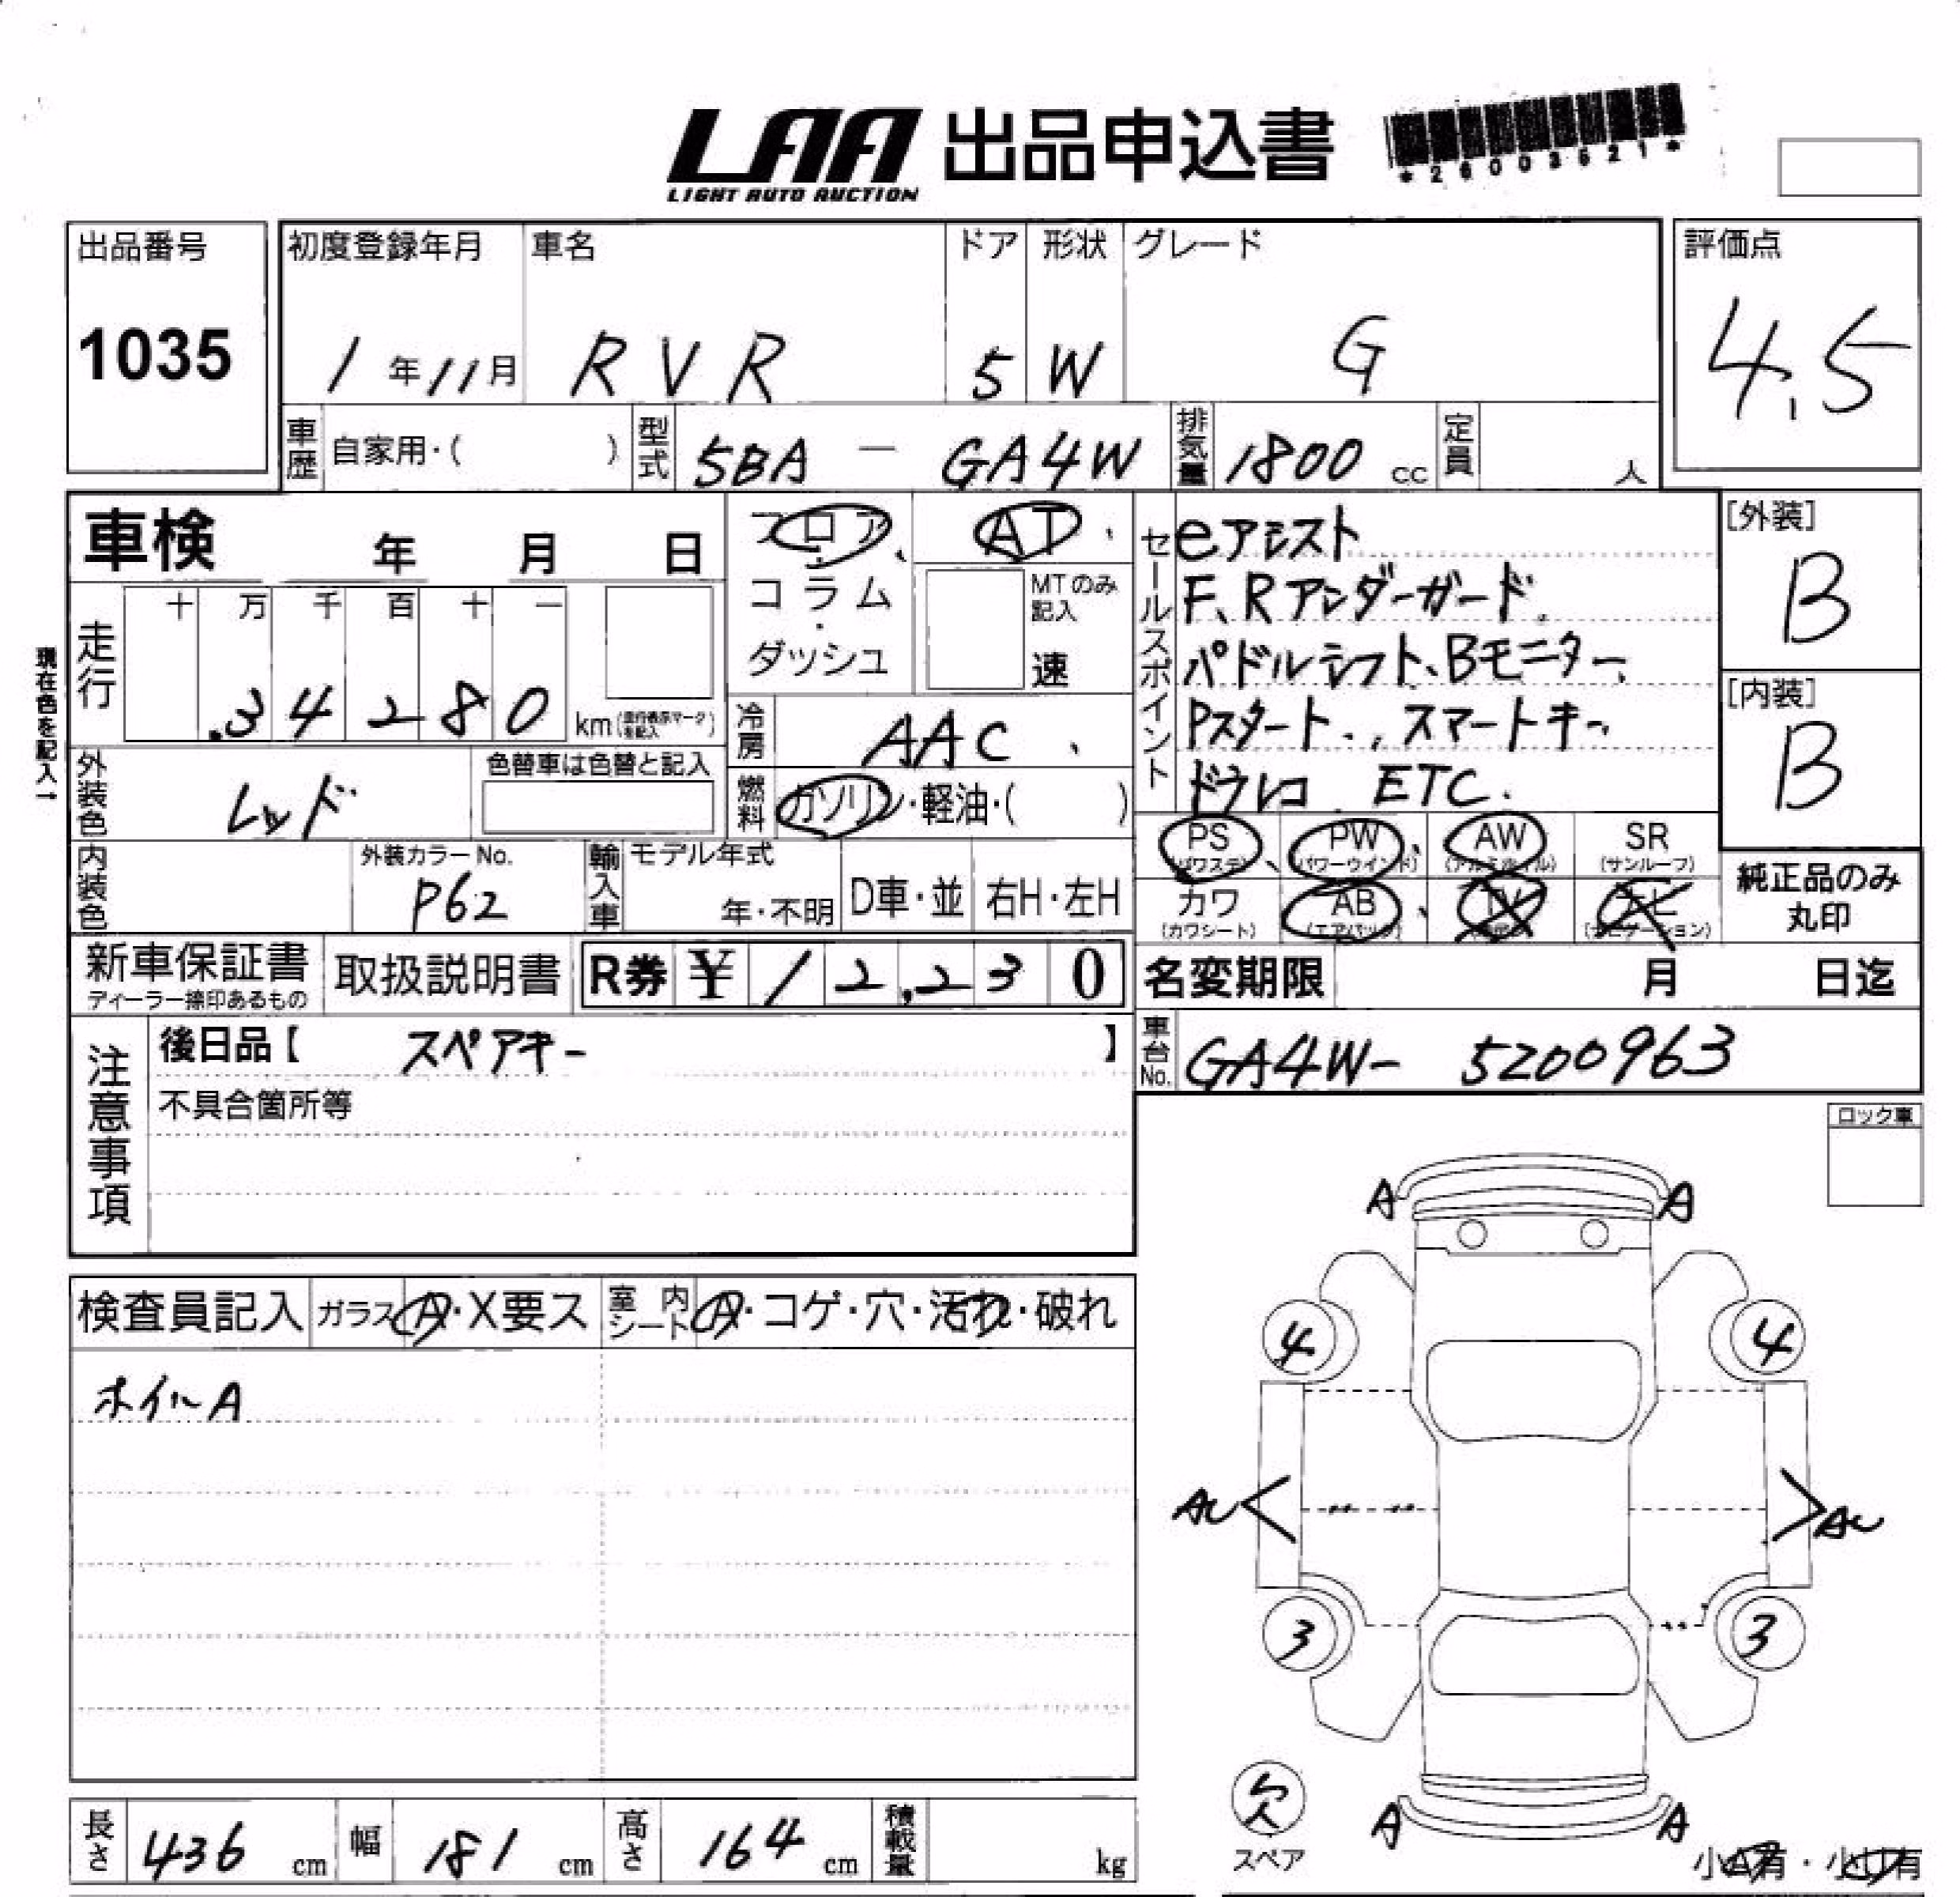 LAA 出品申込書
LIGHT AUTO AUCTION
*26003521*
出品番号
1035
初度登録年月 車名 ドア 形状 グレード
1年11月 RVR 5 W G
評価点
4.5
車歴 自家用・( ) 型式 5BA — GA4W 排気量 1800 cc 定員 人
車検 年 月 日
フロア・コラム・ダッシュ
AT
MTのみ記入
速
セールスポイント
eアシスト
F、Rアンダーガード
パドルシフト、Bモニター
Pスタート、スマートキー
ドラレコ ETC.
[外装]
B
[内装]
B
現在色を記入→
走行 十 万 千 百 十 一
34280 km (走行表示マークを記入)
冷房 AAC
外装色 レッド
色替車は色替と記入
燃料 ガソリン・軽油・( )
PS (パワステ) PW (パワーウインド) AW (アルミホイル) SR (サンルーフ)
カワ (カワシート) AB (エアバック) TV ナビ (ナビゲーション)
純正品のみ丸印
内装色
外装カラーNo.
P62
輸入車 モデル年式
年・不明 D車・並 右H・左H
新車保証書
ディーラー捺印あるもの
取扱説明書
R券 ¥12,230
名変期限 月 日迄
注意事項
後日品【 スペアキー 】
不具合箇所等
車台No. GA4W- 5200963
ロック車
検査員記入 ガラス A・X要ス 室内シート A・コゲ・穴・汚れ・破れ
ホイルA
A A
4 4
AU AU
3 3
A A
欠
スペア
小A有・小U有
長さ 436 cm 幅 181 cm 高さ 164 cm 積載量 kg